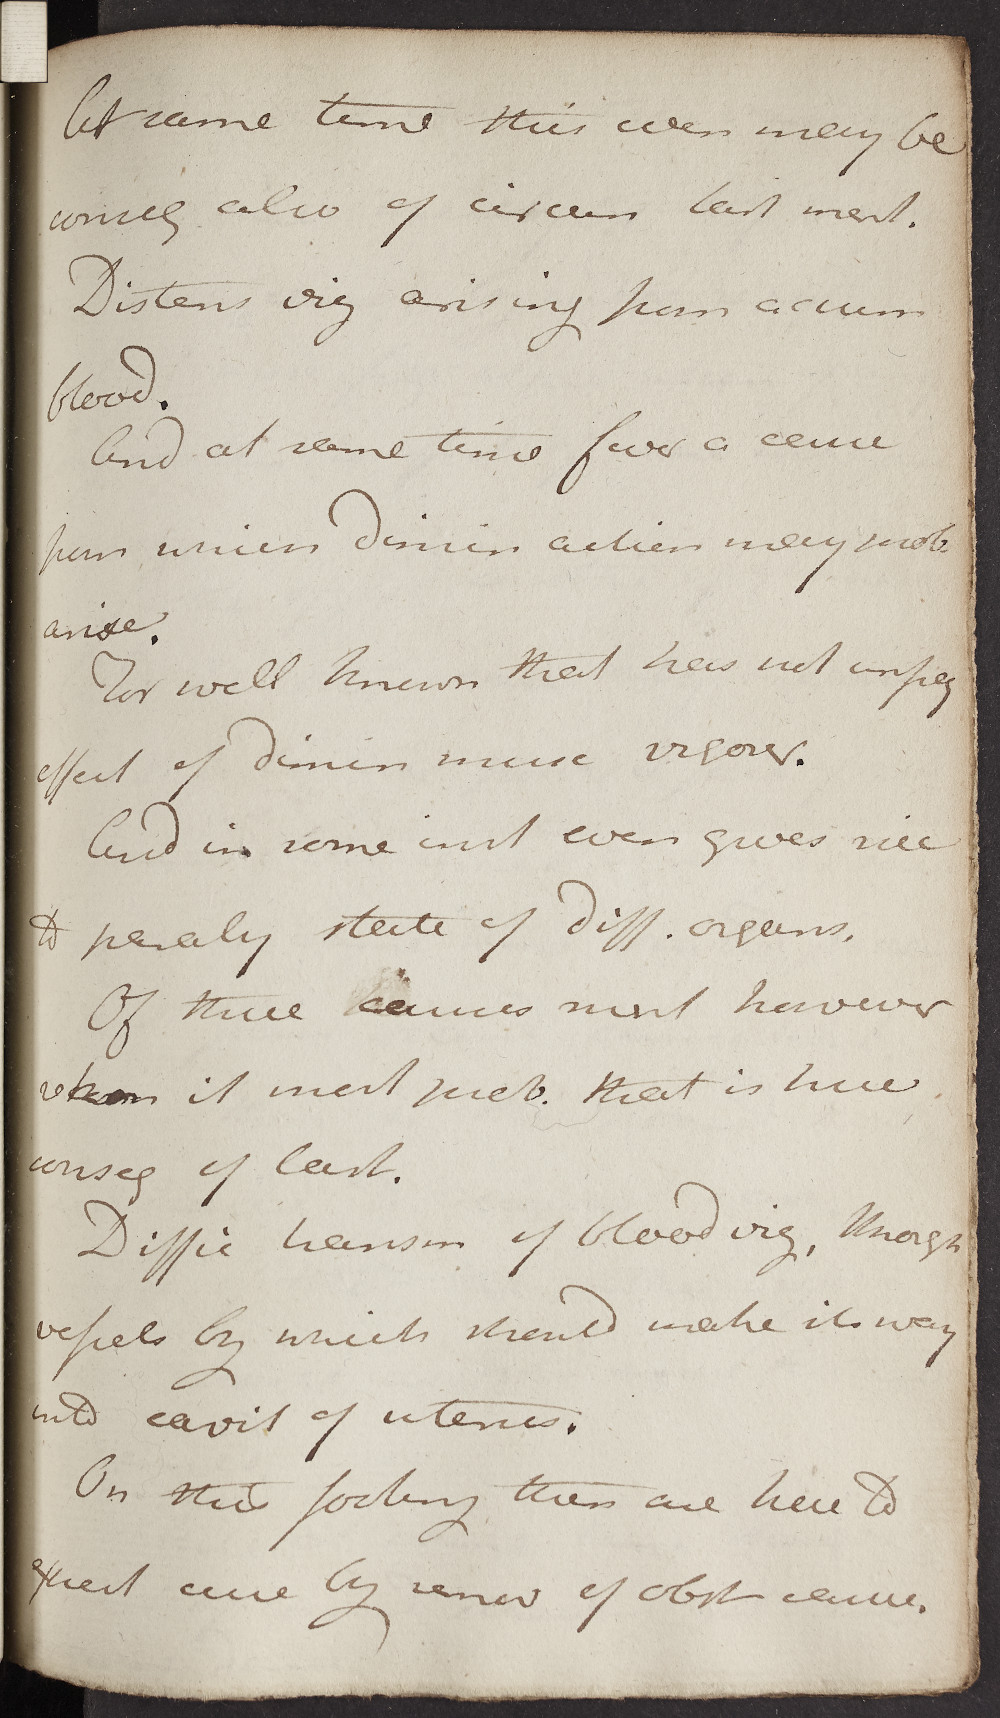 At same time this even may be
conseq also of circum last ment.
Distens vig arising from accum
blood.
And at same time furr a cause
from which dimin action may prob.
arise.
For well known that has not unfreq
effect of dimin musc vigour.
And in some inst even gives rise
to paraly state of diff. organs.
Of these causes ment however
when it most prob. that is here
conseq of last.
Diffic transm of blood vig, through
vessels by which should make its way
into cavit of uterus.
On this footing then are here to
expect cure by remov of obst cause.